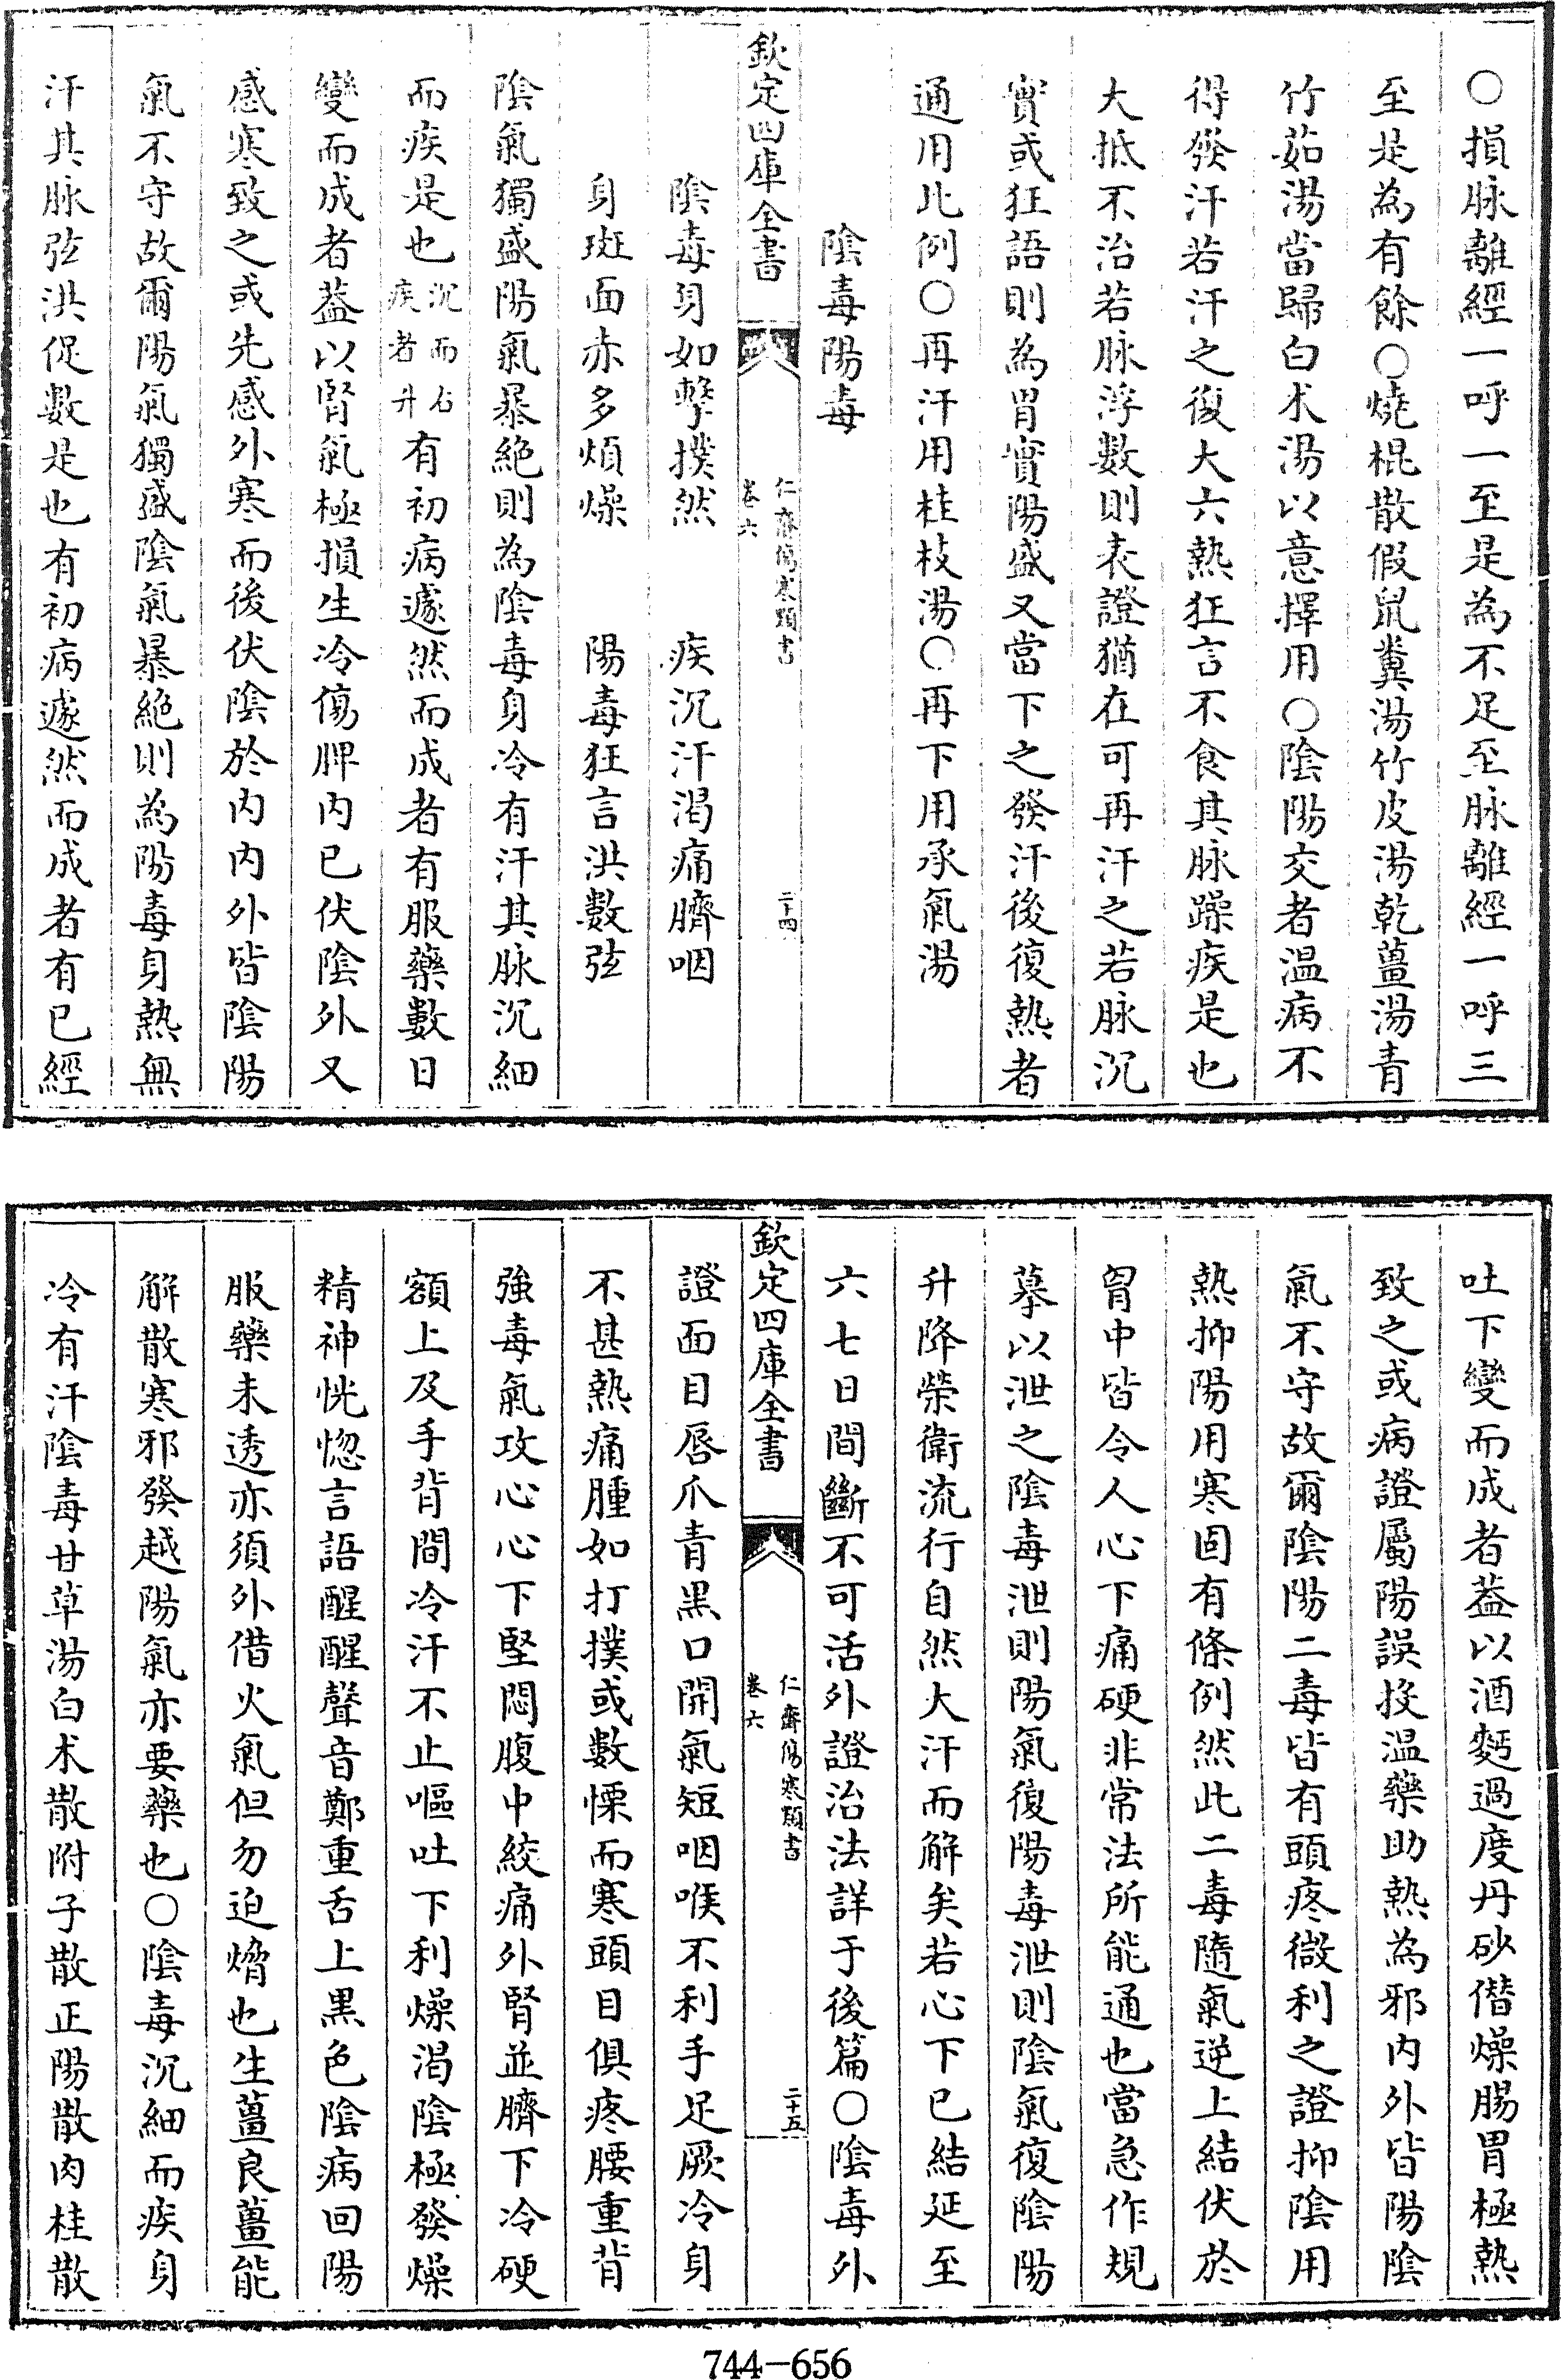 ○損脉離經一呼一至是為不足至脉離經一呼三
至是為有餘○燒棍散假鼠糞湯竹皮湯乾薑湯青
竹茹湯當歸白朮湯以意擇用○陰陽交者温病不
得發汗若汗之復大六熱狂言不食其脉躁疾是也
大抵不治若脉浮數則表證猶在可再汗之若脉沉
實或狂語則為胃實陽盛又當下之發汗後復熱者
通用此例○再汗用桂枝湯○再下用承氣湯
陰毒陽毒
欽定四庫全書
仁齋傷寒類書
卷六
二十四
陰毒身如擊撲然 疾沉汗渴痛臍咽
身斑面赤多煩燥 陽毒狂言洪數弦
陰氣獨盛陽氣暴絶則為陰毒身冷有汗其脉沉細
而疾是也沉而右疾者升有初病遽然而成者有服藥數日
變而成者葢以腎氣極損生冷傷脾内已伏陰外又
感寒致之或先感外寒而後伏陰於内内外皆陰陽
氣不守故爾陽氣獨盛陰氣暴絶則為陽毒身熱無
汗其脉弦洪促數是也有初病遽然而成者有已經
吐下變而成者葢以酒麪過度丹砂僭燥腸胃極熱
致之或病證屬陽誤投温藥助熱為邪内外皆陽陰
氣不守故爾陰陽二毒皆有頭疼微利之證抑陰用
熱抑陽用寒固有條例然此二毒隨氣逆上結伏於
胷中皆令人心下痛硬非常法所能通也當急作規
摹以泄之陰毒泄則陽氣復陽毒泄則陰氣復陰陽
升降榮衛流行自然大汗而解矣若心下已結延至
六七日間斷不可活外證治法詳于後篇○陰毒外
欽定四庫全書
仁齋傷寒類書
卷六
二十五
證面目唇爪青黑口開氣短咽喉不利手足厥冷身
不甚熱痛腫如打撲或數慄而寒頭目俱疼腰重背
強毒氣攻心心下堅悶腹中絞痛外腎並臍下冷硬
額上及手背間冷汗不止嘔吐下利燥渴陰極發燥
精神恍惚言語醒醒聲音鄭重舌上黒色陰病回陽
服藥未透亦須外借火氣但勿迫熁也生薑良薑能
解散寒邪發越陽氣亦要藥也○陰毒沉細而疾身
冷有汗陰毒甘草湯白朮散附子散正陽散肉桂散
744-656